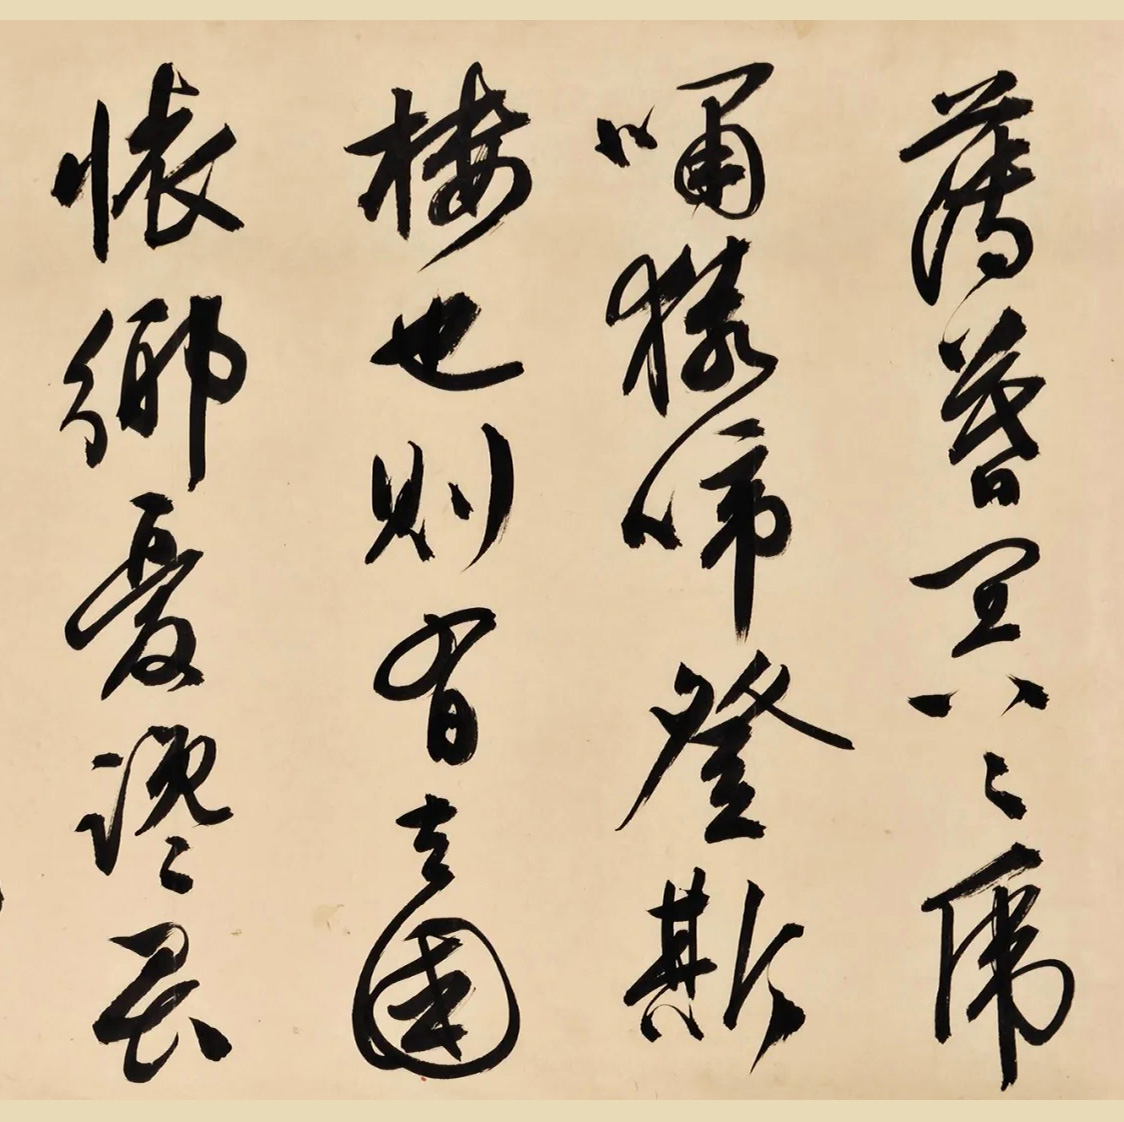 薄暮冥〻虎
嘯猿啼登斯
樓也則有去國
懷鄉憂讒〻畏